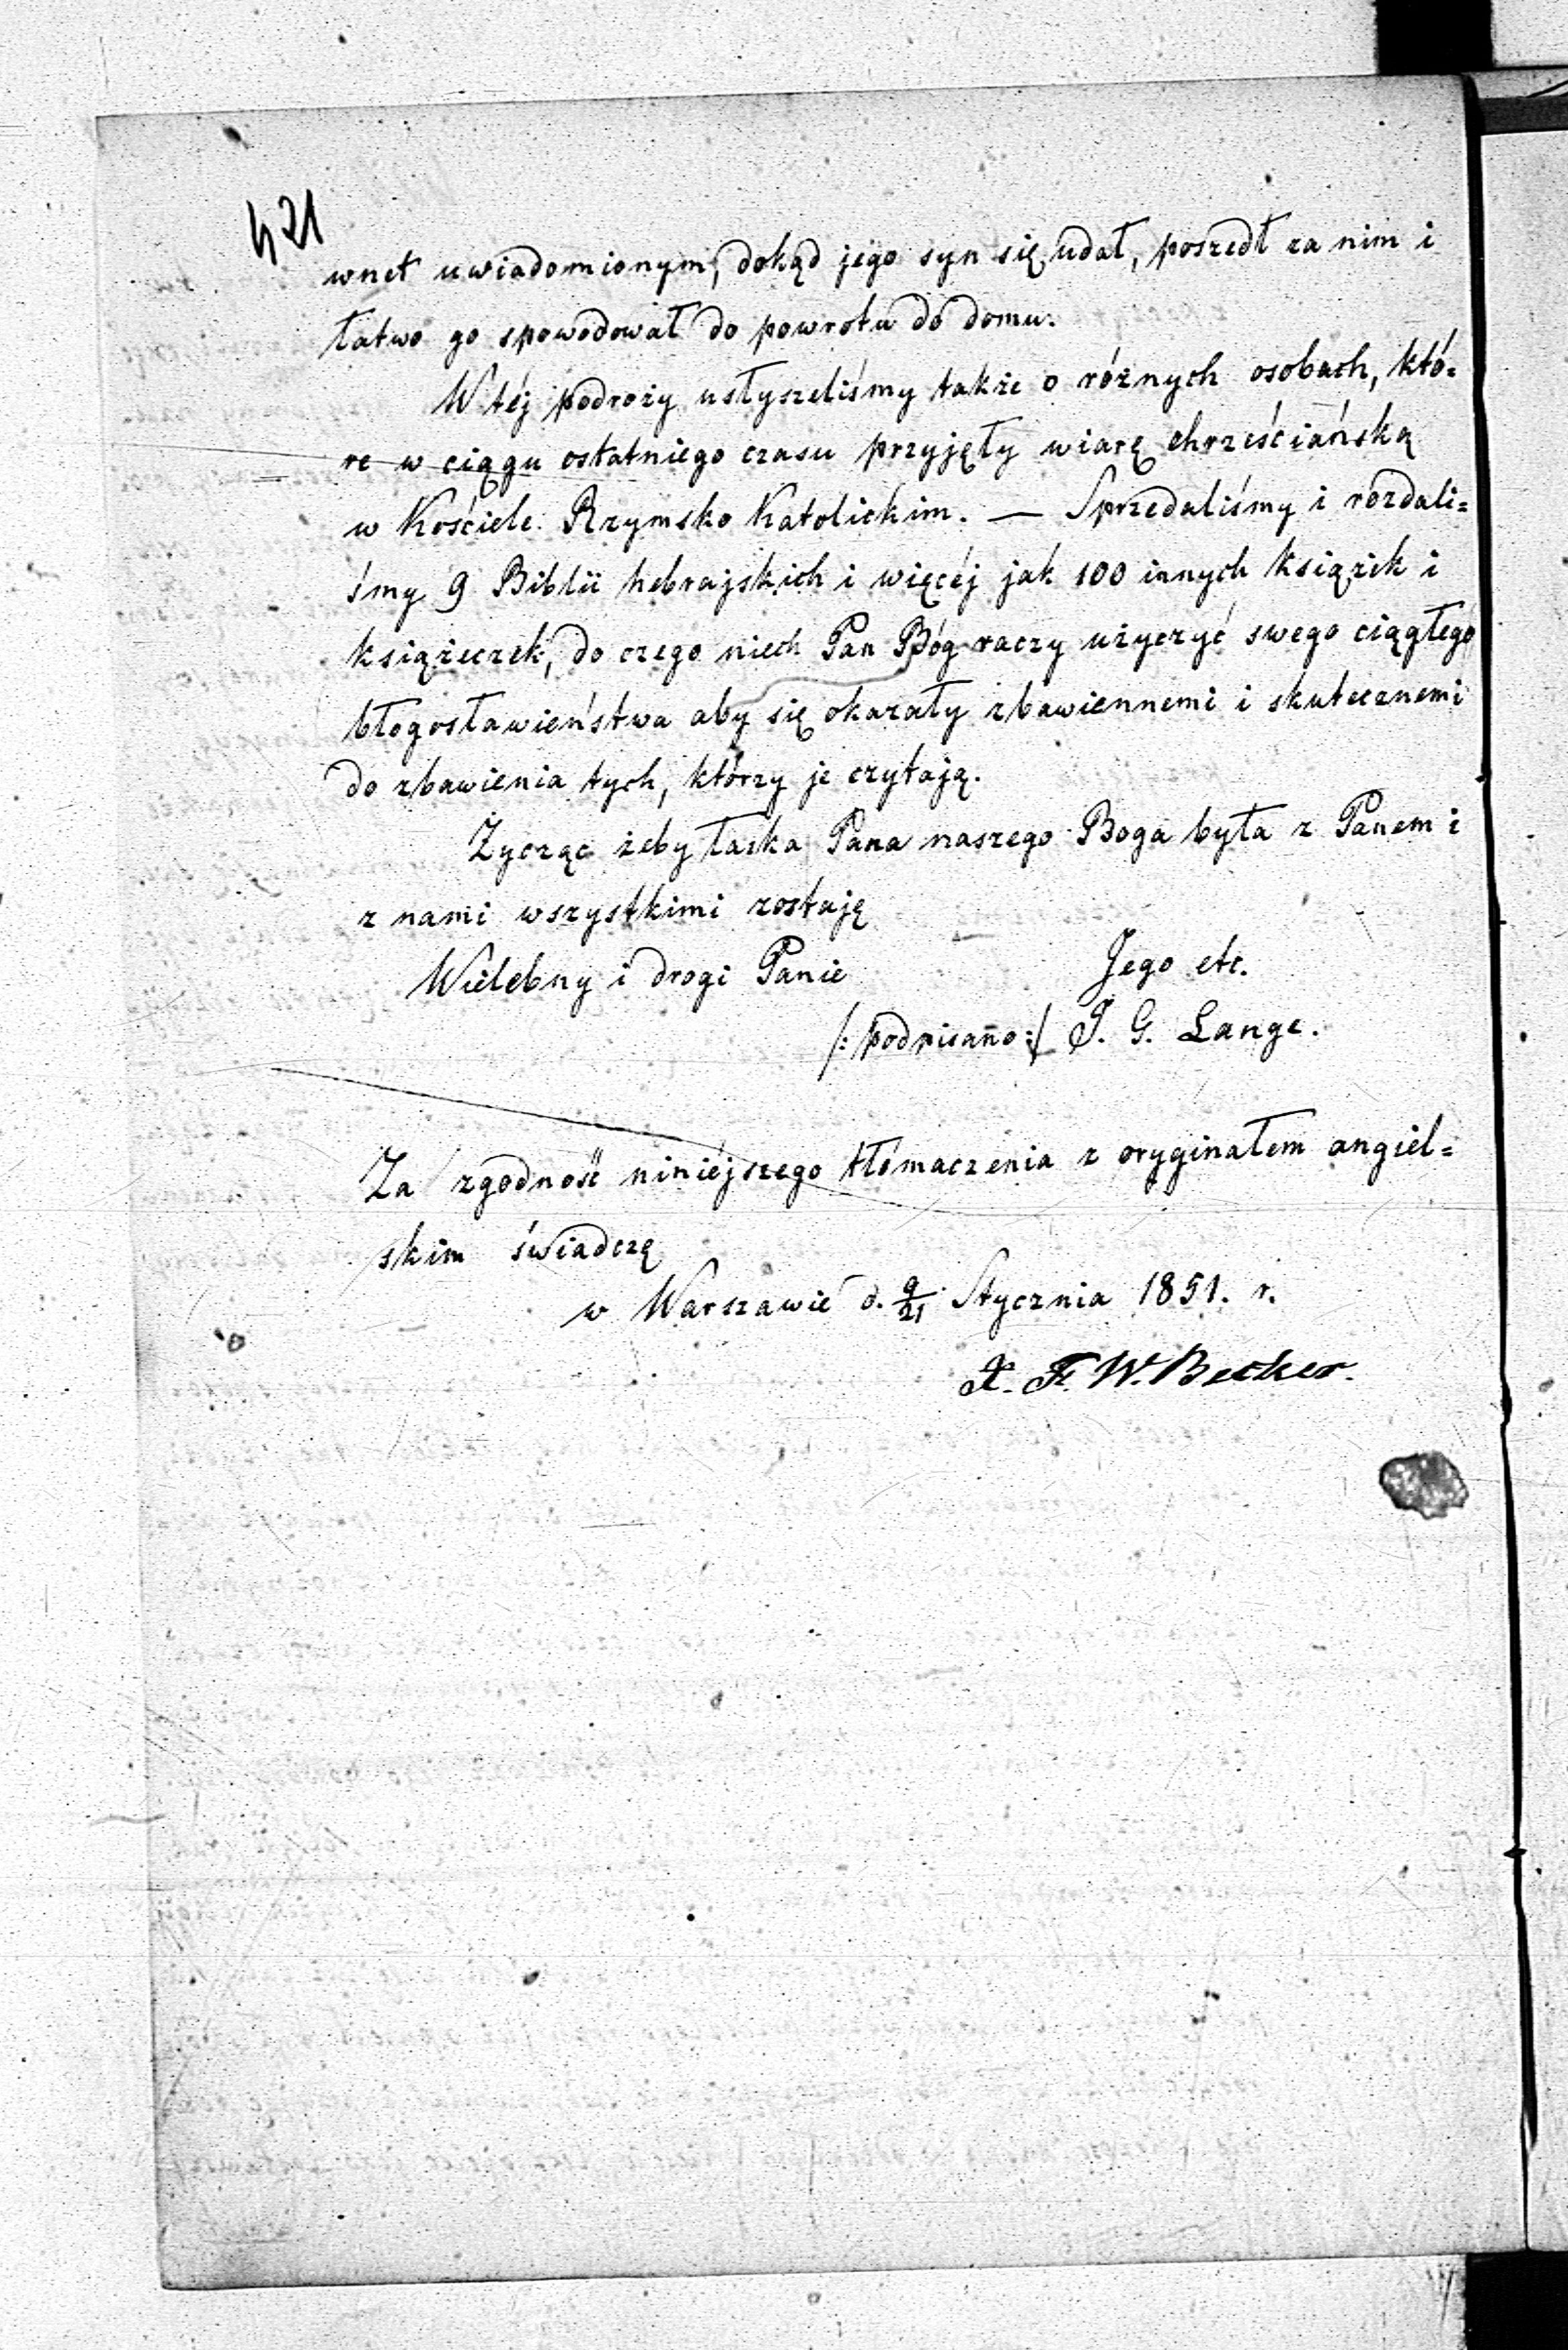 421
wnet uwiadomionym, dokąd jego syn się udał, poszedł za nim i
łatwo go spowodował do powrotu do domu.
W téj podroży usłyszeliśmy także o różnych osobach, któ-
re w ciągu ostatniego czasu przyjęły wiarę chrześciańską
w Kościele Rzymsko Katolickim. — Sprzedaliśmy i rozdali=
śmy 9 Biblii hebrajskich i więcéj jak 100 innych książek i
książeczek, do czego niech Pan Bóg raczy użyczyć swego ciągłego
błogosławieństwa aby się okazały zbawiennemi i skutecznemi
do zbawienia tych, którzy je czytają.
Życząc żeby łaska Pana naszego Boga była z Panem i
z nami wszystkimi zostaję
Wielebny i drogi Panie Jego etc.
/: podpisano :/ J. G. Lange.
Za zgodność niniéjszego tłómaczenia z oryginałem angiel=
skim świadczę
w Warszawie d. 9/21 Stycznia 1851. r.
X. F. W. Becker.